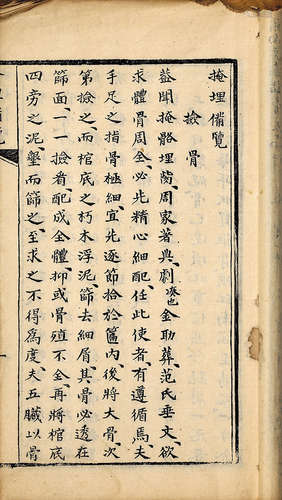 掩埋備覽
撿骨
蓋聞掩骼埋胔、周家著典、劇塚也金助葬、范氏垂文、欲
求體骨周全、必先精心細配、任此使者、有遵循焉、夫
手足之指骨極細、宜先逐節拾於籃內、後將大骨、次
第撿之、而棺底之朽木浮泥、篩去細屑、其骨必透在
篩面、一一撿者配成全體、抑或骨殖不全、再將棺底
四旁之泥、鑿而篩之、至求之不得為度、夫五臟以骨